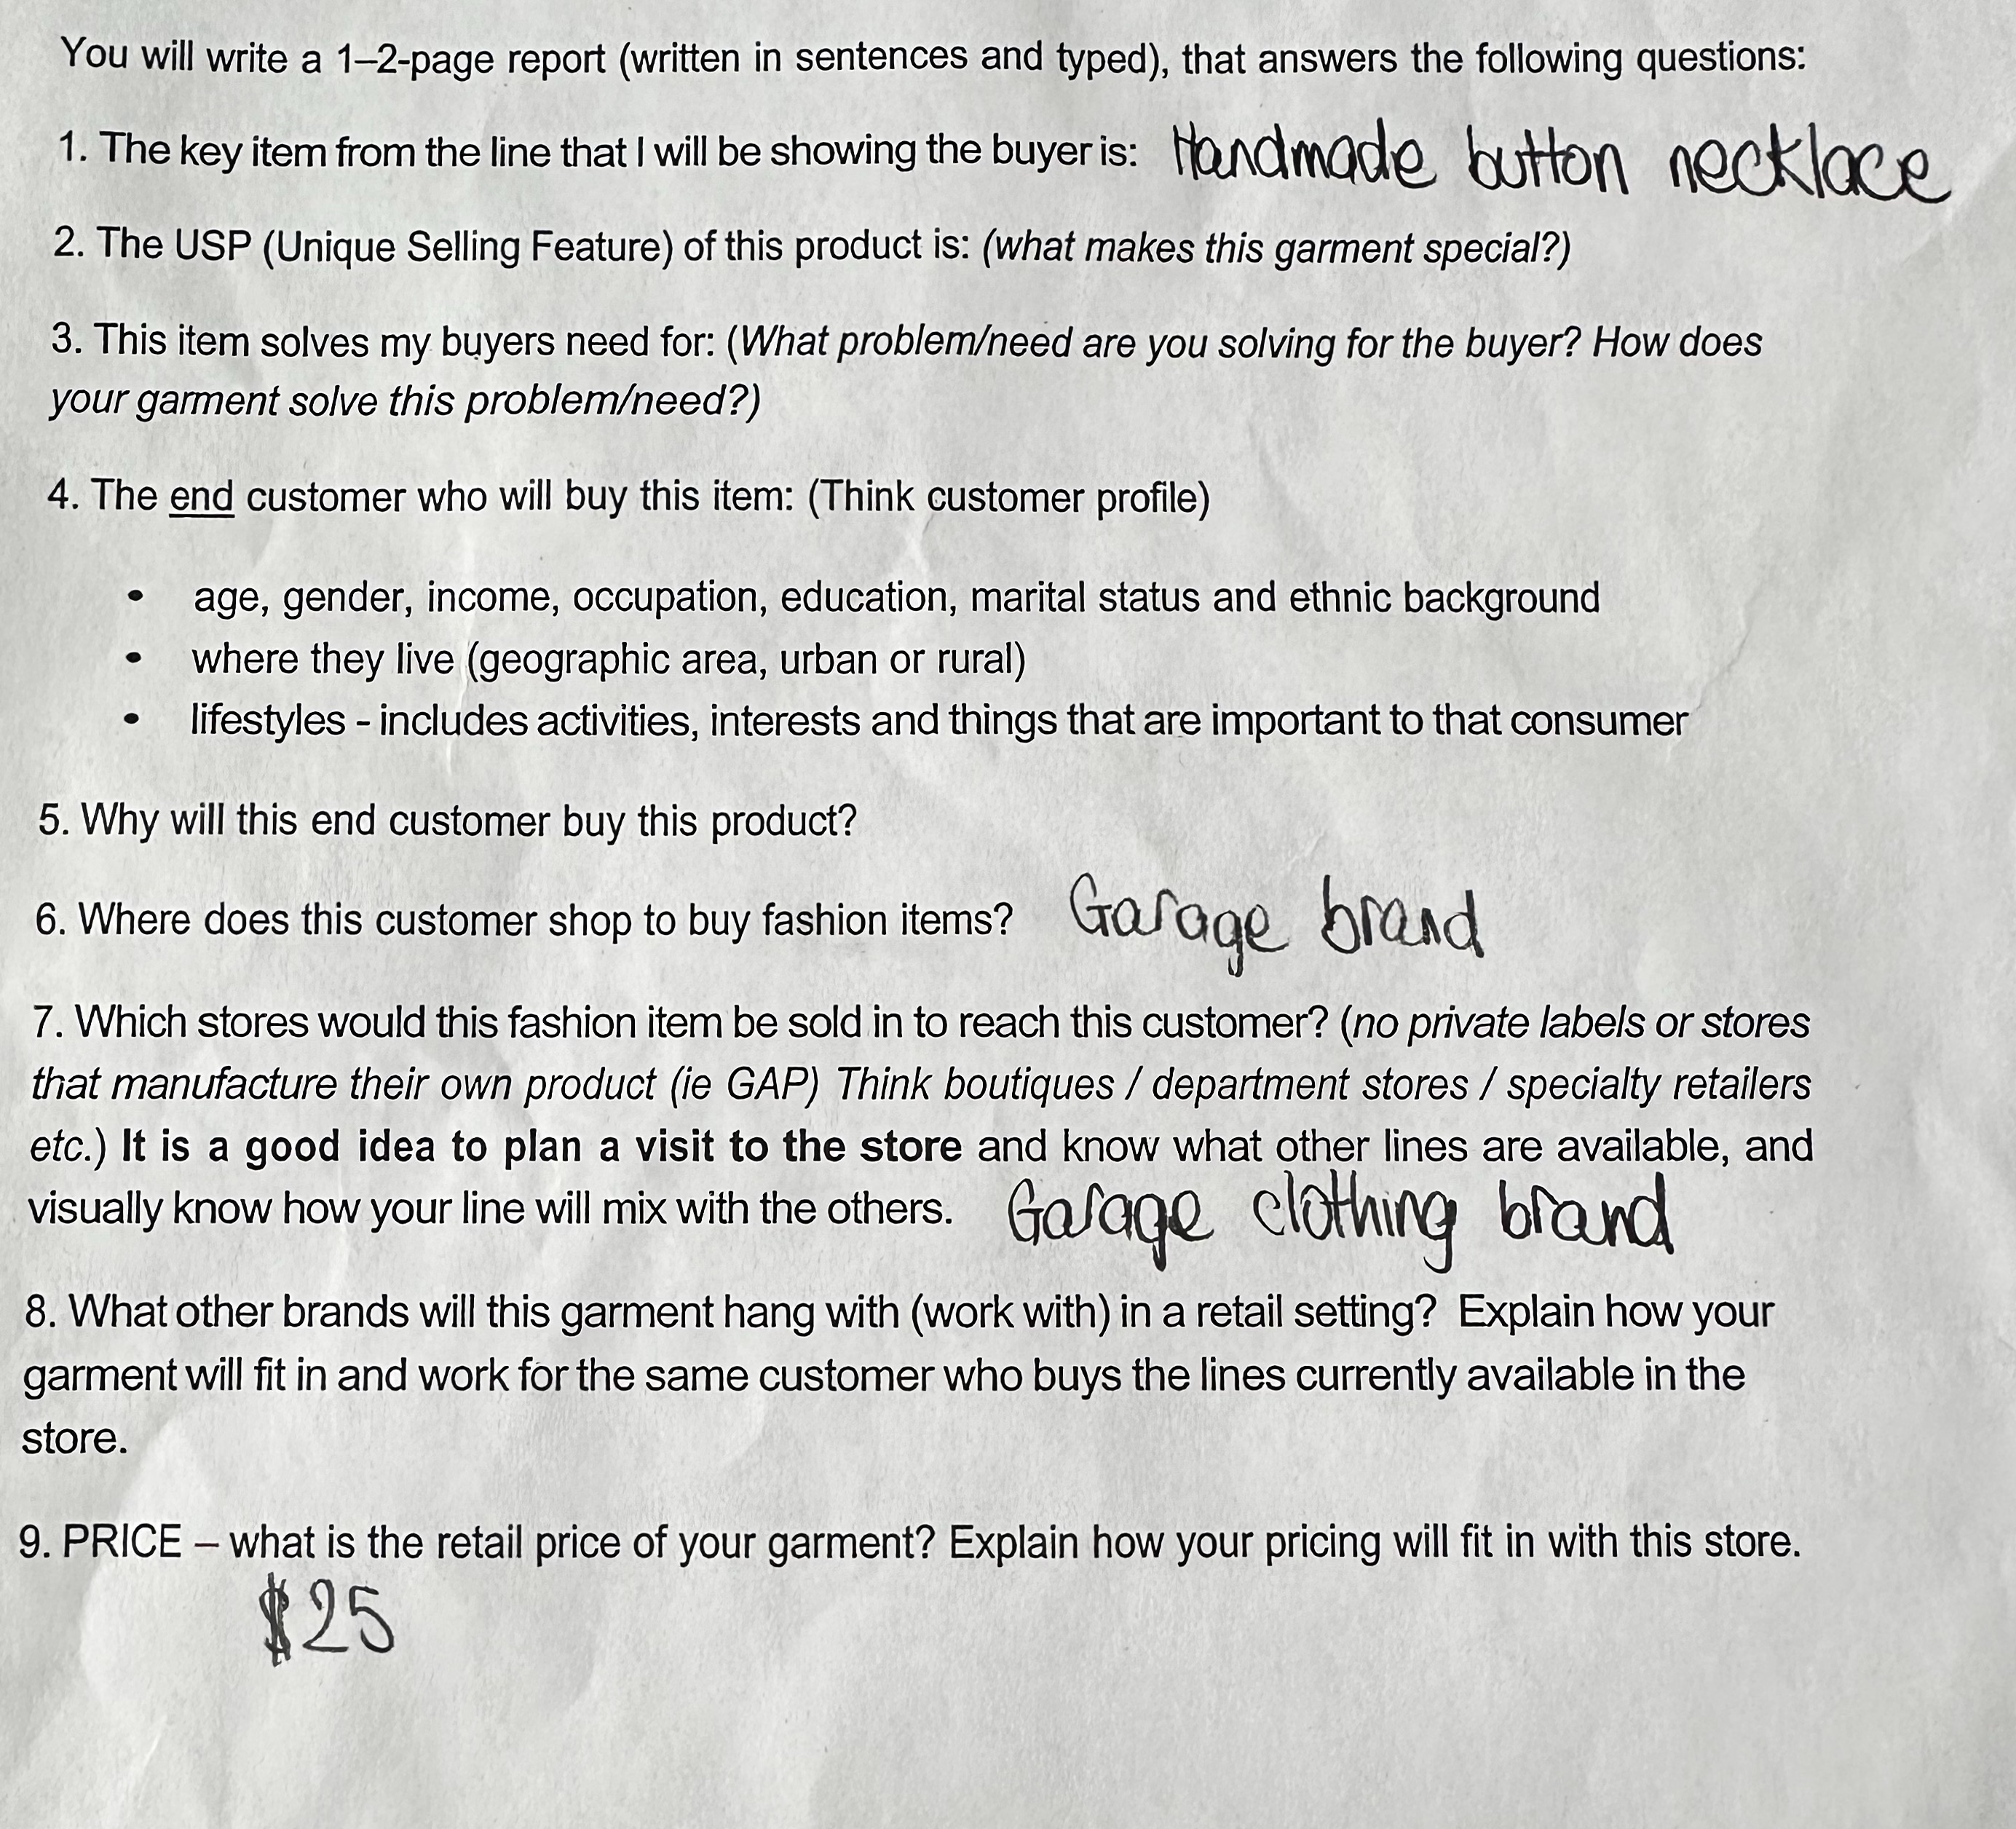 You will write a 1–2-page report (written in sentences and typed), that answers the following questions:
1. The key item from the line that I will be showing the buyer is: Handmade button necklace
2. The USP (Unique Selling Feature) of this product is: (what makes this garment special?)
3. This item solves my buyers need for: (What problem/need are you solving for the buyer? How does
your garment solve this problem/need?)
4. The end customer who will buy this item: (Think customer profile)
• age, gender, income, occupation, education, marital status and ethnic background
• where they live (geographic area, urban or rural)
• lifestyles - includes activities, interests and things that are important to that consumer
5. Why will this end customer buy this product?
6. Where does this customer shop to buy fashion items? Garage brand
7. Which stores would this fashion item be sold in to reach this customer? (no private labels or stores
that manufacture their own product (ie GAP) Think boutiques / department stores / specialty retailers
etc.) It is a good idea to plan a visit to the store and know what other lines are available, and
visually know how your line will mix with the others. Garage clothing brand
8. What other brands will this garment hang with (work with) in a retail setting? Explain how your
garment will fit in and work for the same customer who buys the lines currently available in the
store.
9. PRICE – what is the retail price of your garment? Explain how your pricing will fit in with this store.
$25